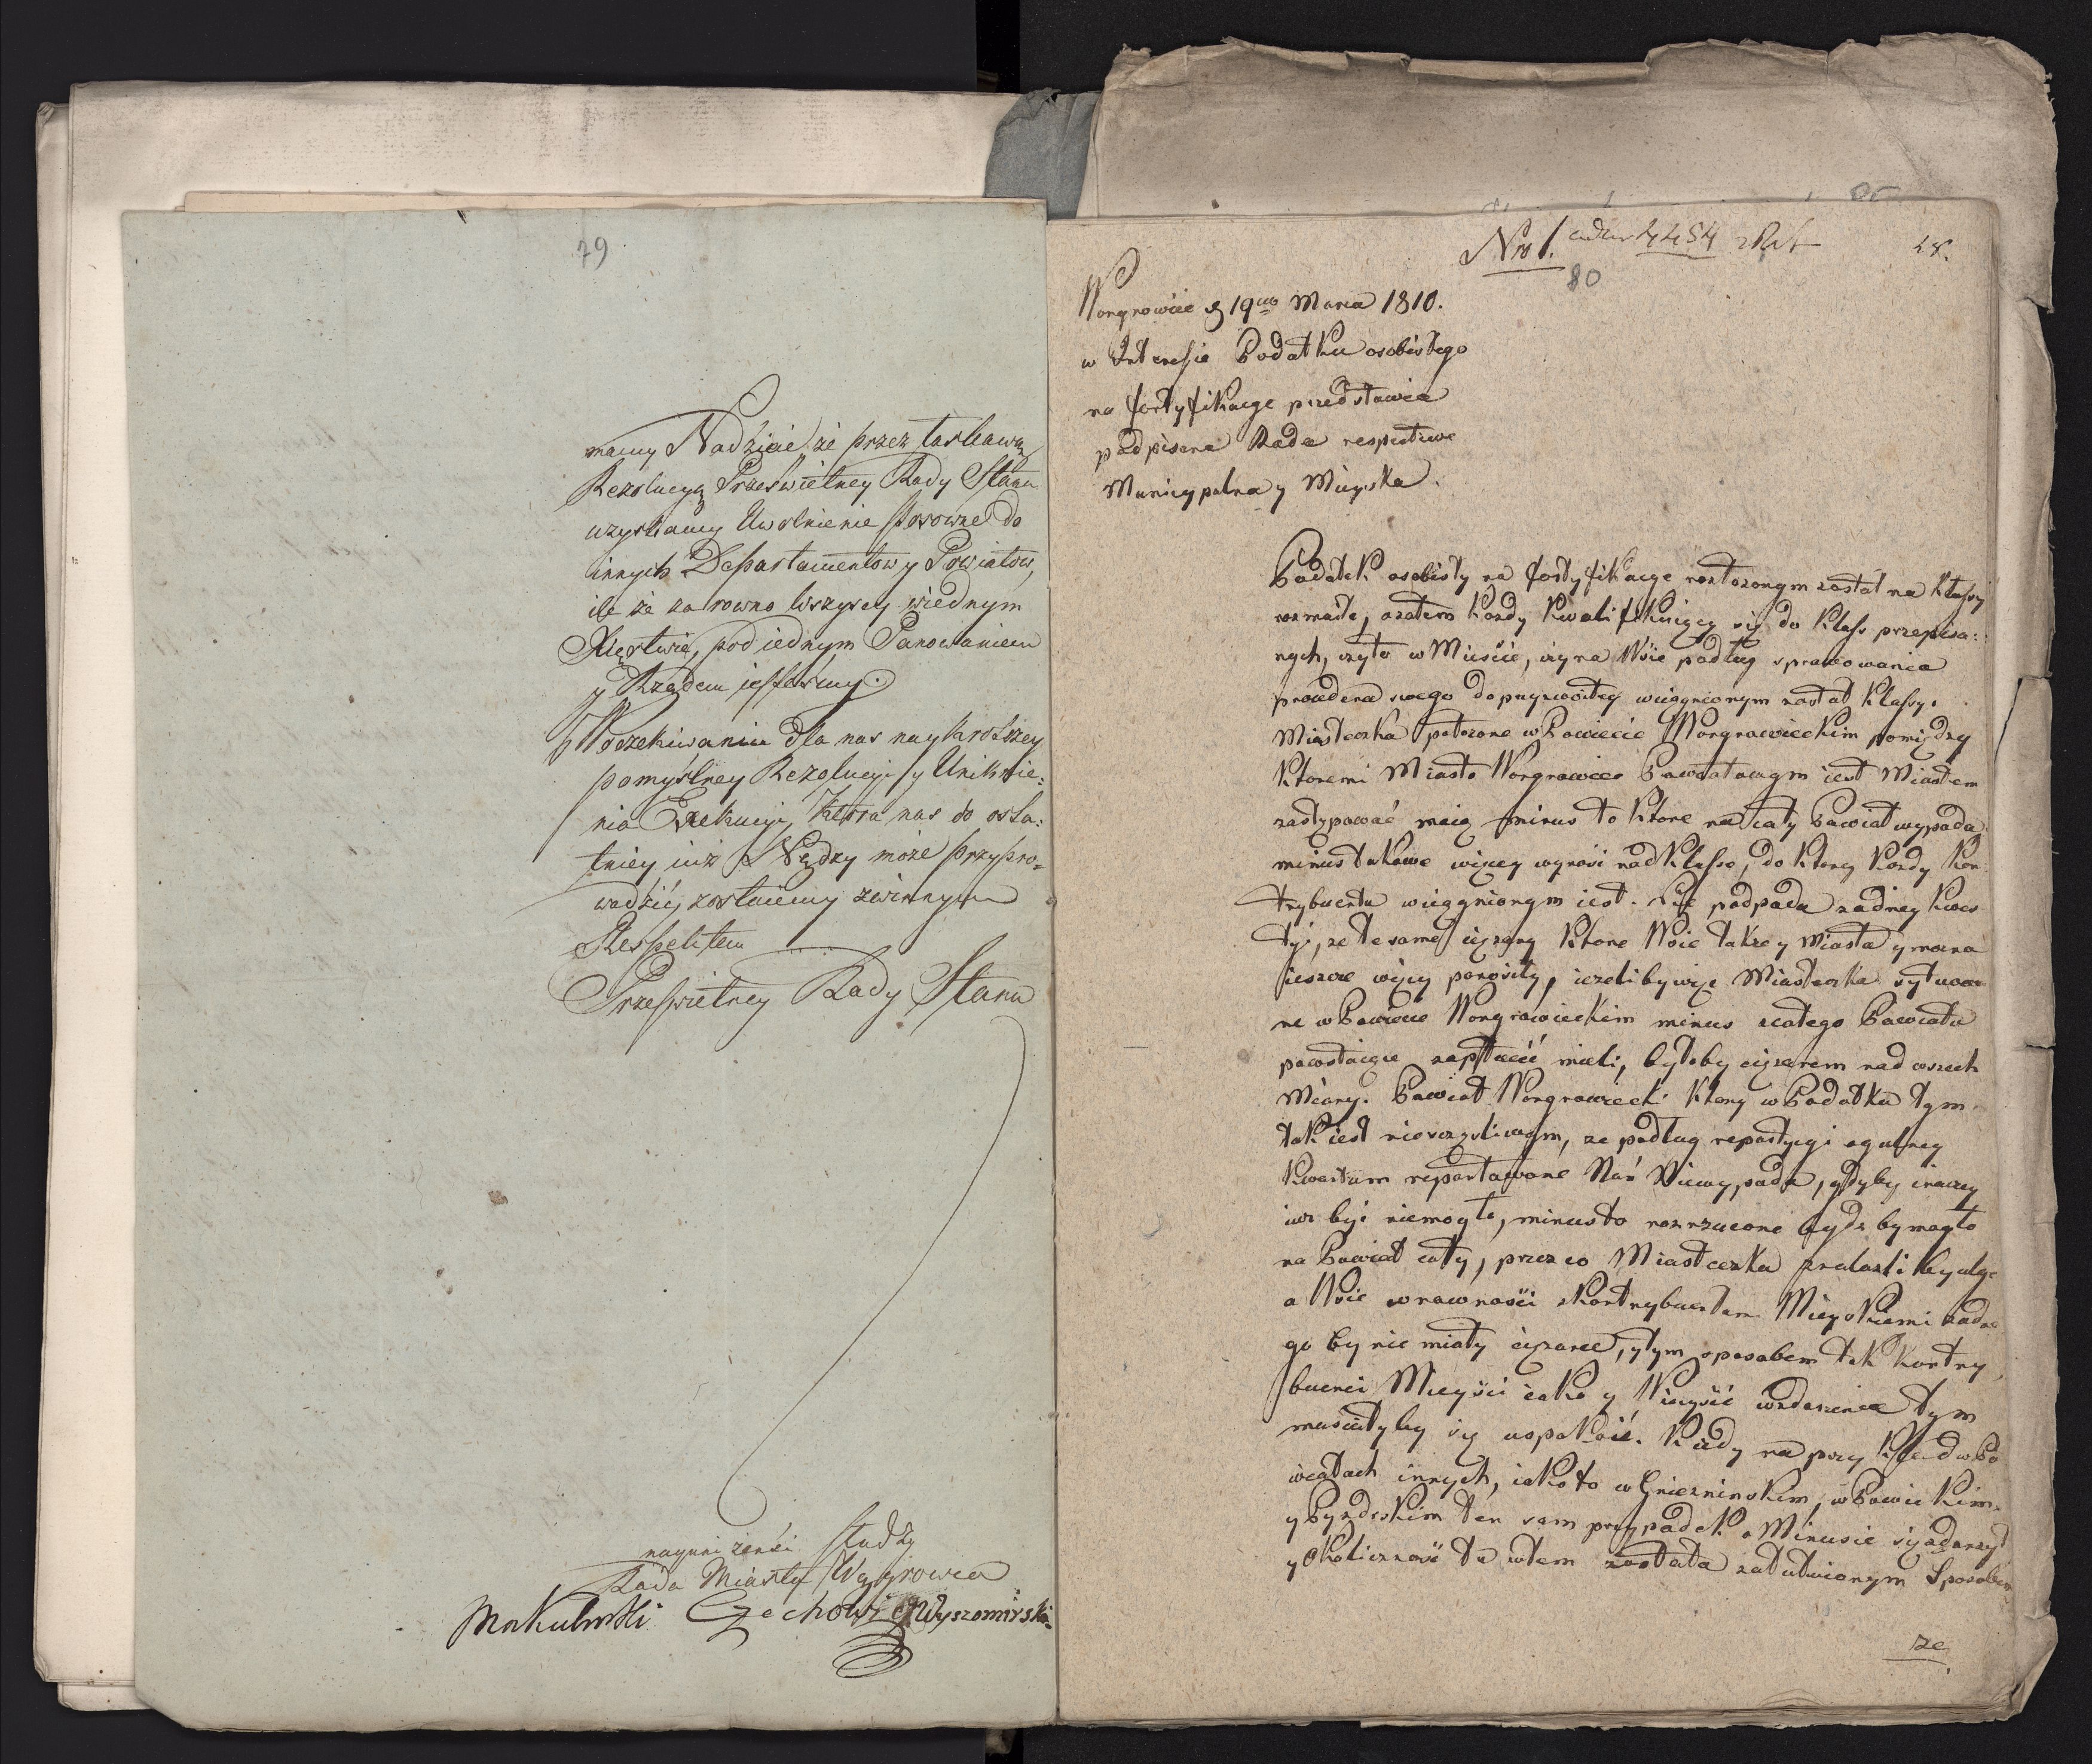 79
mamy Nadzieie, że przez łaskawą
Rezolucyą Prześwietney Rady Stanu
uzyskamy Uwolnienie stosowne do
innych Departamentow y Powiatow,
ile że zarowno wszyscy wiednym
Xięstwie, pod iednym Panowaniem
y Rządem iestesmy.
W oczekiwaniu dla nas naykrotszey
pomyślney Rezolucyi y Uniknie:
nia Exekucyi, ktora nas do osta:
tniey iuż Nędzy może przypro-
wadzić, zostaiemy zwinnym
Respektem
Prześwietney Rady Stanu
nayuniżeńsi Słudzy
Rada Miasta Wągrowca
Makulmski Czechowi Wyszomirski
Nro 1. 4454
28.
80
Wongrowiec d 19no Marca 1810.
w Interesie Podatku osobistego
na fortyfikacye przedstawia
podpisana Rada respective
Municypalna y Mieyska.
Podatek osobisty na fortyfikacye rozłozonym został na Klassy
rozmaite, azatem kazdy kwalifikuiący się do Klass przepisa:
nych, czyto w Mieście, czy na Wsie podług sprawowania
swego do przyzwoitey wciągnionym został Klassy.
Miasteczka położone w Powiecie Wongrowieckim pomiędzy
Ktoremi Miasto Wongrowiec Powiatowym iest Miastem
zastępować maią minus to Ktore na cały Powiat wypada
minus takowe więcey wynosi nad Klasse, do Ktorey kazdy Kon
trybuenta wciągnionym iest. Nie podpada zadney kwes
tyi, ze te same cięzary Ktore Wsie takze y Miasta y mozna
ieszcze więcy ponosiły, iezeliby więc Miasteczka sytuowa
ne w Powiecie Wongrowieckim minus z całego Powiatu
powstaiące zapłacić mieli, byłoby cięzarem nad wszech
Miary. Powiat Wongrowiecki Ktory w Podatku tym
tak iest nieszczęśliwym, ze podług repartycyi ogulney
Kwantum repartowane Nań Niewypada, gdyby inaczey
iuz być niemogło, minus to rozrzucone bydz by mogło
na Powiat cały, przez co Miasteczka znalazłi by ulgę
a Wsie wrownosci z Kontrybuentami Mieyskiemi zadne
go by nie miały cięzaru, y tym sposobem tak Kontry
buenci Mieyści iako y Wieyscy wzdarzeniu tym
musieliby się uspokoić. Kiedy na przykład w Po
wiatach innych, iako to w Gnieznińskim, w Powickim
y Pyzdrskim ten sam przypadek o Minusie się zdarzył
y okoliczność ta wtem została zatwionym Sposobem
ze